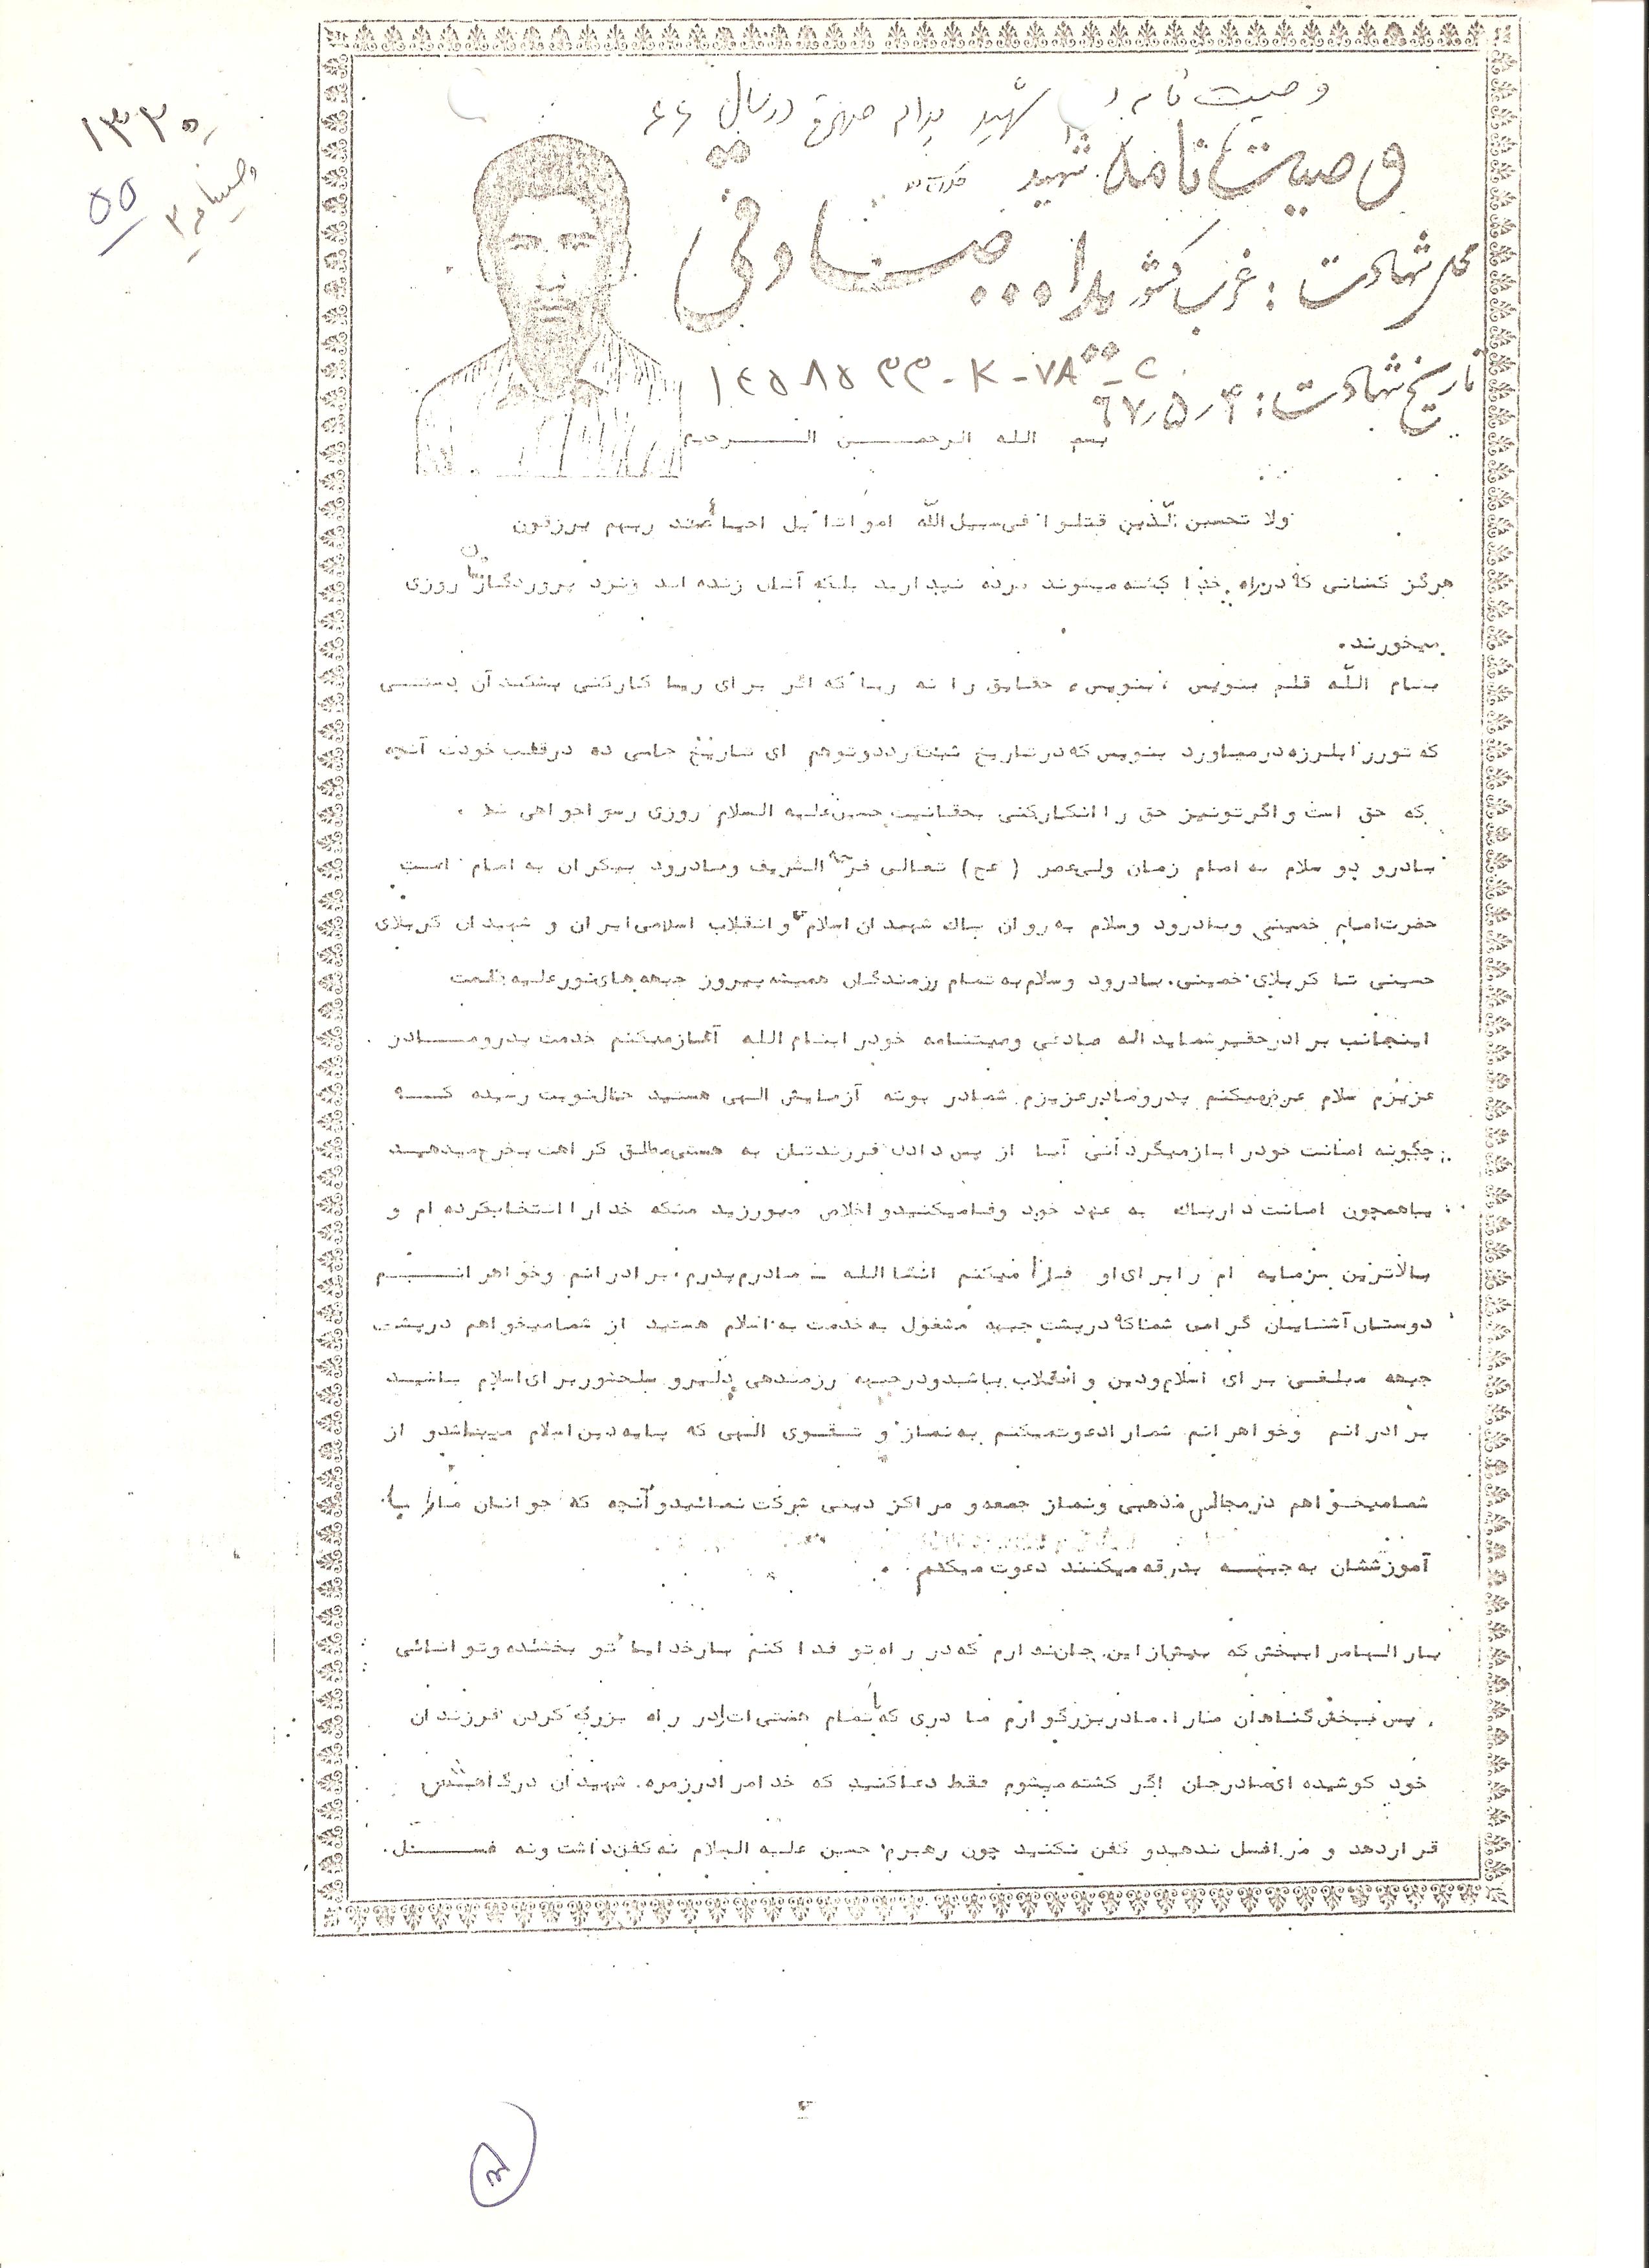 ۱۳۳۰
وصیتنامه ۳
۵۵
وصیت نامه شهید یداله صادقی در سال ۶۶
وصیت نامه شهید
یداله صادقی
محل شهادت : غرب کشور
۱۴۵۸۵۳۳-K-۷۸
تاریخ شهادت : ۶۷٫۵٫۴
بسم الله الرحمن الرحیم
ولا تحسبن الّذین قتلوا فی سبیل اللّه امواتا بل احیاء عند ربهم یرزقون
هرگز کسانی که در راه خدا کشته میشوند مرده نپندارید بلکه آنان زنده اند ونزد پروردگارشان روزی
میخورند.
بنام اللّه قلم بنویس ، بنویس، حقایق را نه ریا که اگر برای ریا کارکنی بشکند آن دستی
که تورا بلرزه درمیاورد بنویس که در تاریخ ثبت گردد وتوهم ای تاریخ جای ده درقلب خودت آنچه
که حق است و اگر تونیز حق را انکارکنی بحقانیت حسین علیه السلام روزی رسوا خواهی شد .
بادرود و سلام به امام زمان ولی عصر (عج) تعالی فرجه الشریف وبادرود بیکران به امام امت
حضرت امام خمینی وبادرود وسلام به روان پاک شهیدان اسلام و انقلاب اسلامی ایران و شهیدان کربلای
حسینی تا کربلای خمینی. بادرود وسلام به تمام رزمندگان همیشه پیروز جبهه های نور علیه ظلمت
اینجانب برادر حقیر شما یداله صادقی وصیتنامه خودرا بنام الله آغاز میکنم خدمت پدرومادر
عزیزم سلام عرض میکنم پدرومادر عزیزم شما در بوته آزمایش الهی هستید حال نوبت رسیده که
چگونه امانت خودرا باز میگردانی آیا از پس دادن فرزندتان به هستی مطلق کراهت بخرج میدهید
یا همچون امانت دار پاک به عهد خود وفا میکنید و اخلاص میورزید منکه خدا را انتخاب کرده ام و
بالاترین سرمایه ام را برای او فدا میکنم انشا الله - مادرم پدرم، برادرانم وخواهرانم
دوستان آشنایان گرامی شما که در پشت جبهه مشغول به خدمت به اسلام هستید از شما میخواهم در پشت
جبهه مبلغی برای اسلام ودین و انقلاب باشید ودر جبهه رزمندهی دلیر و سلحشور برای اسلام باشید
برادرانم وخواهرانم شما را دعوت میکنم به نماز و تقوی الهی که پایه دین اسلام میباشد و از
شما میخواهم در مجالس مذهبی ونماز جمعه و مراکز دینی شرکت نمائید و آنچه که جوانان ما را با
آموزششان به جبهه بدرقه میکنند دعوت میکنم .
بار الها مرا ببخش که بیش از این جان ندارم که در راه تو فدا کنم بارخدایا تو بخشنده وتوانائی
پس ببخش گناهان ما را. مادر بزرگوارم مادری که با تمام هستی ات در راه بزرگ کردن فرزندان
خود کوشیده ای مادرجان اگر کشته میشوم فقط دعا کنید که خدا مرا در زمره شهیدان درگاهش
قرار دهد و مرا غسل ندهید و کفن نکنید چون رهبرم حسین علیه السلام نه کفن داشت ونه غسل.
۳